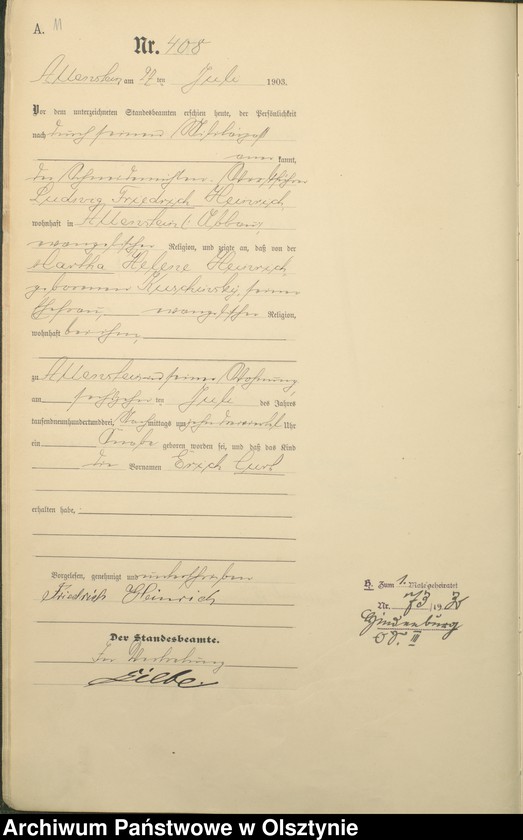 A. 11
Nr. 408
Allenstein am ten Juli 1903.
Vor dem unterzeichneten Standesbeamten erschien heute, der Persönlichkeit
nach durch seinen
kannt,
der
Ludwig Friedrich Heinrich,
wohnhaft in Allenstein Abbau,
evangelischer Religion, und zeigte an, daß von der
Martha Helene Heinrich
geborenen seiner
Ehefrau, evangelischer Religion,
wohnhaft bei ihm,
zu Allenstein in seiner Wohnung,
am ten Juli des Jahres
tausendneunhundertunddrei, Nachmittags um Uhr
ein Knabe geboren worden sei, und daß das Kind
die Vornamen Erich Curt
erhalten habe.
Vorgelesen, genehmigt und unterschrieben
Friedrich Heinrich
Der Standesbeamte.
In Vertretung
H. Zum 1. Mal geheiratet
Nr. 73/1930
Hindenburg
O.S. III
Archiwum Państwowe w Olsztynie